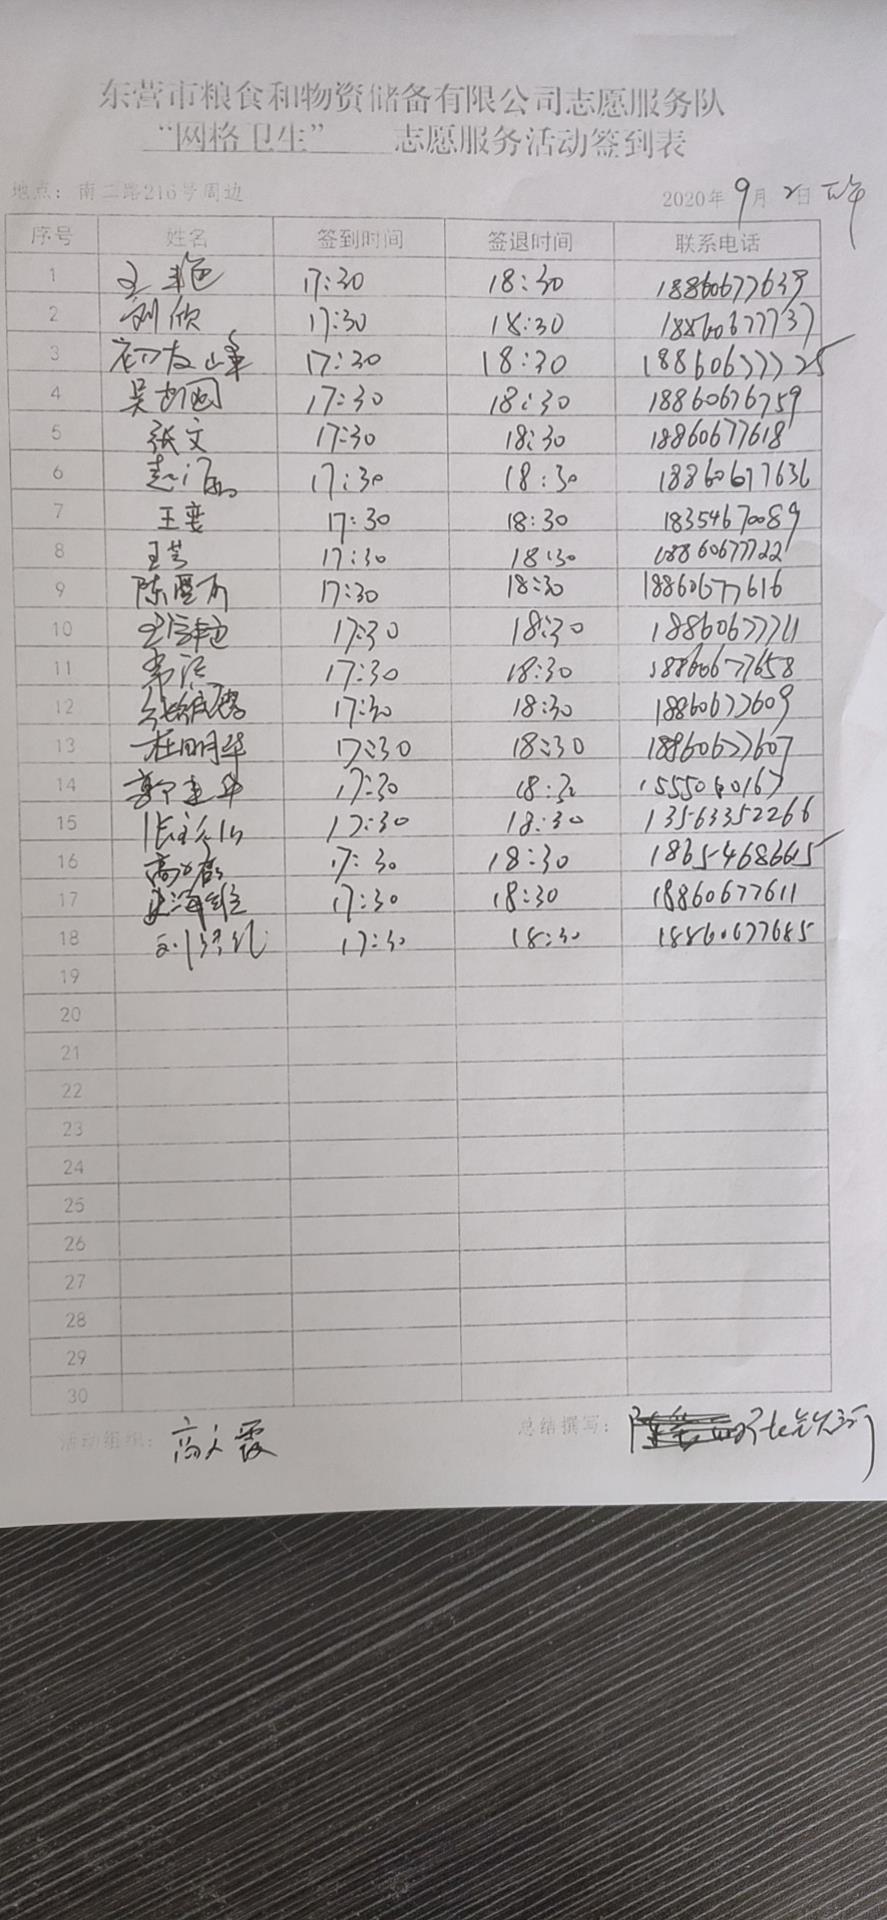 东营市粮食和物资储备有限公司志愿服务队
“网格卫生” 志愿服务活动签到表
地点：南二路216号周边 2020年9月2日下午
序号 姓名 签到时间 签退时间 联系电话
1 王艳 17:30 18:30 18860677639
2 刘欣 17:30 18:30 18860677737
3 初友峰 17:30 18:30 18860677725
4 吴 17:30 18:30 18860676759
5 张文 17:30 18:30 18860677618
6 17:30 18:30 18860677636
7 王奕 17:30 18:30 18354670089
8 王芸 17:30 18:30 18860677722
9 陈 17:30 18:30 18860677616
10 17:30 18:30 18860677711
11 17:30 18:30 18860677658
12 17:30 18:30 18860677609
13 杜明华 17:30 18:30 18860677607
14 郭建华 17:30 18:30
15 17:30 18:30 13563352266
16 17:30 18:30 18654686615
17 17:30 18:30 18860677611
18 刘 17:30 18:30 18860677685
19
20
21
22
23
24
25
26
27
28
29
30
活动组织：高文霞 总结撰写：